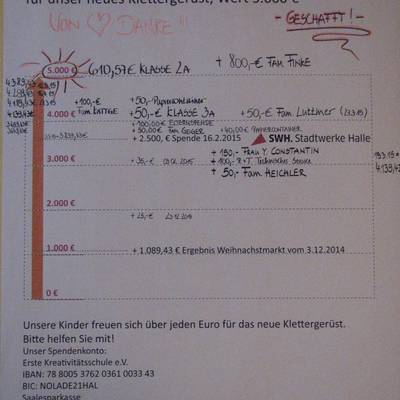 für unser neues Klettergerüst, Wert 5.000 €
VON ♡ DANKE !!!
- GESCHAFFT ! -
5.000 € 610,57€ KLASSE 2A + 800,-€ FAM FINKE
+100,-€ FAM LÄTTGE
+50,- Papiercontainer
4.000 € +50,-€ KLASSE 3A +50,-€ Fam. Luttmer
+ 100,00€ ELTERNSPENDE
+ 50,00€ FAM GEIGER + 40,00€ PAPIERCONTAINER
+ 2.500,€ Spende 16.2.2015 SWH. Stadtwerke Halle
+ 150,- FRAU Y. CONSTANTIN
3.000 € + 100,- R+T Technischer Service
+ 50,- FAM HEICHLER
2.000 €
1.000 € + 1.089,43 € Ergebnis Weihnachstmarkt vom 3.12.2014
0 €
Unsere Kinder freuen sich über jeden Euro für das neue Klettergerüst.
Bitte helfen Sie mit!
Unser Spendenkonto:
Erste Kreativitätsschule e.V.
IBAN: 78 8005 3762 0361 0033 43
BIC: NOLADE21HAL
Saalesparkasse